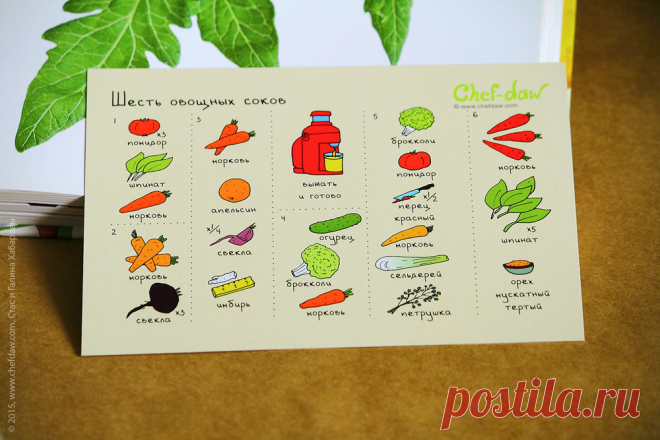 Шесть овощных соков
Chef-daw
© www.chefdaw.com
1
x3
помидор
шпинат
морковь
2
морковь
свекла x3
3
морковь
апельсин
x1/4
свекла
имбирь
выжать
и готово
4
огурец
брокколи
морковь
5
брокколи
помидор
x1/2
перец
красный
морковь
сельдерей
петрушка
6
морковь
x5
шпинат
орех
мускатный
тертый
© 2015, www.chefdaw.com. Стас и Галина Хабаровы
postila.ru